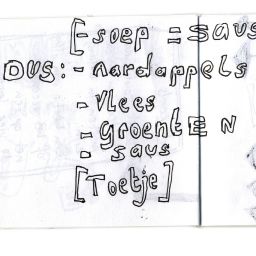 [- soep = saus
DUS: - Aardappels
- Vlees
- groentEN
= saus
[Toetje]